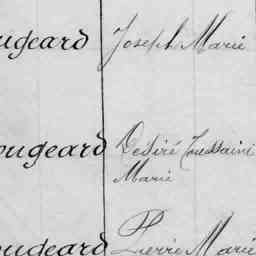 ougeard Joseph Marie
ougeard Desiré Toussaint
Marie
ougeard Pierre Marie